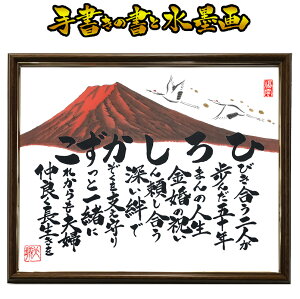 手書きの書と水墨画
ひびき合う二人が
歩んだ五十年
ろまんの人生
金婚の祝い
しん頼し合う
深い絆で
かぞくを支え守り
ずっと一緒に
これからも夫婦
仲良く長生きを